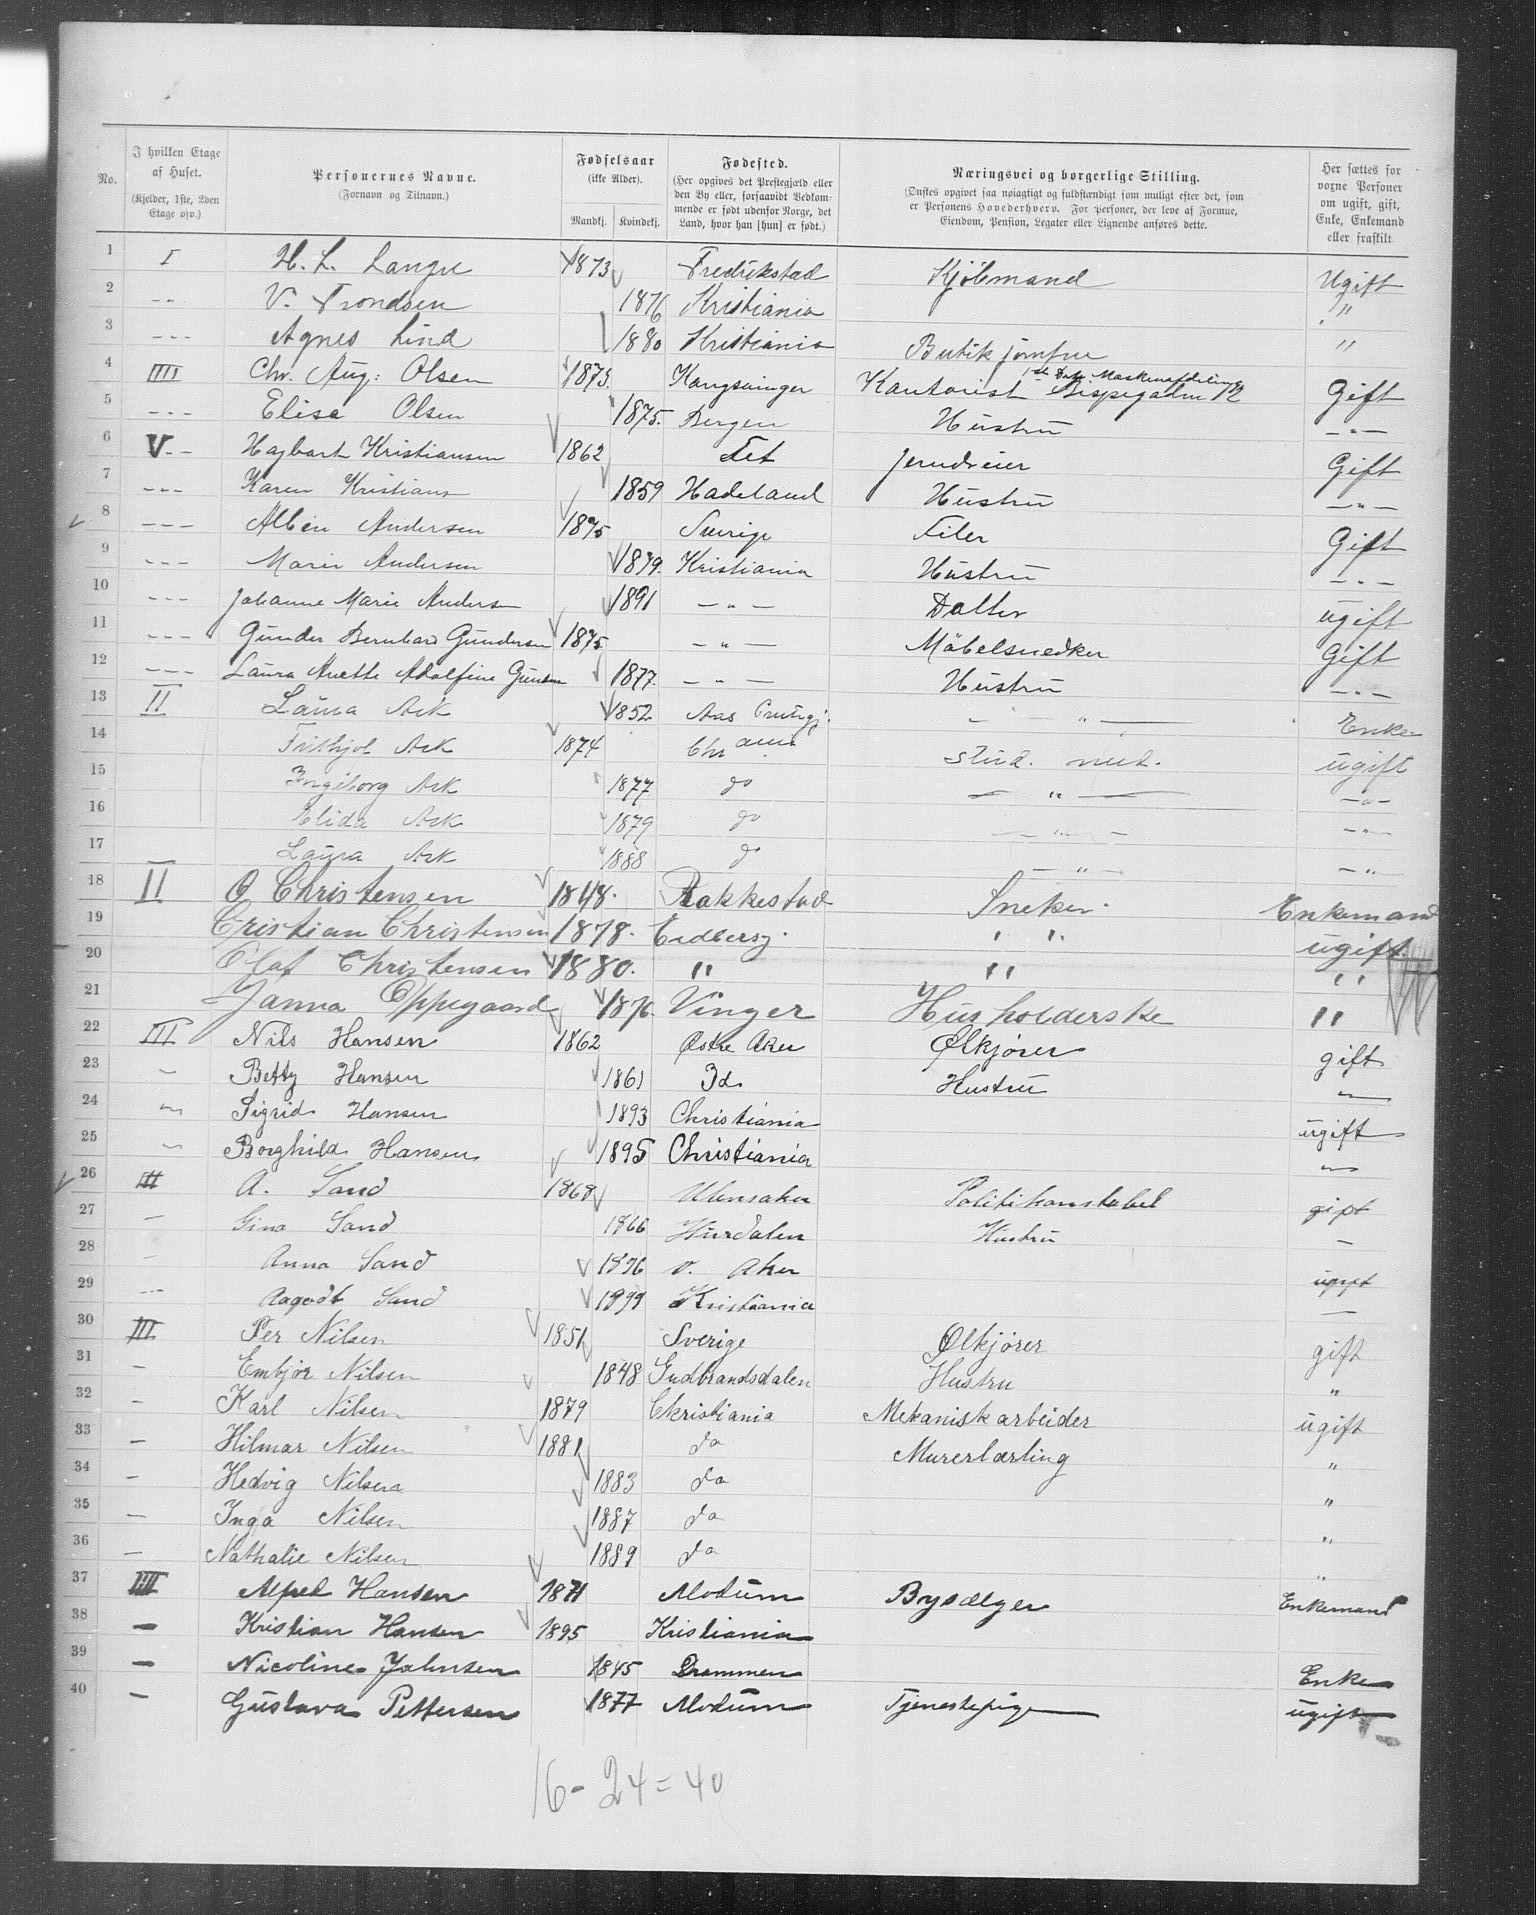 No. I hvilken Etage af Huset. (Kjelder, 1ste, 2den Etage osv.) Personernes Navne. (Fornavn og Tilnavn.) Fødselsaar (ikke Alder). Mandkj. Kvindekj. Fødested. (Her opgives det Prestegjæld eller den By eller, forsaavidt Vedkommende er født udenfor Norge, det Land, hvor han [hun] er født.) Næringsvei og borgerlige Stilling. (Ønskes opgivet saa nøiagtigt og fuldstændigt som muligt efter det, som er Personens Hovederhverv. For Personer, der leve af Formue, Eiendom, Pension, Legater eller Lignende anføres dette. Her sættes for voxne Personer om ugift, gift, Enke, Enkemand eller fraskilt
1 I H. L. Langu 1873 Fredrikstad Kjöbmand Ugift
2 -- V. Trondsen 1876 Kristiania "
3 --- Agnes Lind 1880 Kristiania Butikjomfru "
4 IIII Chr. Aug: Olsen 1873 Kongsvinger Kontorist Bispegaden 12 Gift
5 --- Elisa Olsen 1875. Bergen Hustru -"-
6 V-- Hagbart Kristiansen 1862 Fet Jerndreier Gift
7 --- Karen Kristians 1859 Hadeland Hustru -"-
8 --- Albin Andersen 1875 Sverige Filer Gift
9 --- Marie Andersen 1879. Kristiania Hustru -"-
10 --- Johanne Marie Andersen 1891 -"- Datter ugift
11 --- Gunder Bernhard Gundersen 1875 -"- Möbelsnedker Gift
12 --- Laura Anette Adolfine Gunden 1877. -"- Hustru -"-
13 II Laura Ask 1852 Aas Prstgj. -"- Enke
14 Frithjof Ask 1874 Chr ania stud. med. ugift
15 Ingeborg Ask 1877 do -"- -"-
16 Elida Ask 1879 do -"- -"-
17 Laura Ask 1888 do -"- -"-
18 II O Christensen 1848. Rakkestad Sneker. Enkemand
19 Cristian Christensen 1878. Eidbersg. " " ugift
20 Olaf Christensen 1880. " " "
21 Janna Oppegaard 1876. Vinger Husholderske "
22 III Nils Hansen 1862 Østre Aker Ølkjører gift
23 - Betty Hansen 1861 Id. Hustru -
24 - Sigrid Hansen 1893 Christiania ugift
25 - Borghild Hansen 1895 Christiania -
26 III A. Sand 1868 Ulensaker Politikonstabel gift
27 - Gina Sand 1866 Hurdalen Hustru -
28 - Anna Sand 1896 v. Aker ugift
29 -- Aagodt Sand 1899 Kristiania -
30 III Per Nilsen 1851 Sverige Ølkjører gift
31 - Embjør Nilsen 1848 Gudbrandsdalen Hustru "
32 - Karl Nilsen 1879 Christiania Mekanisk arbeider ugift
33 - Hilmar Nilsen 1881 do Murerlærling "
34 - Hedvig Nilsen 1883 do "
35 - Inga Nilsen 1887 do "
36 - Nathalie Nilsen 1889 do "
37 IIII Alfred Hansen 1871 Modum Brysælger Enkemand
38 - Kristian Hansen 1895 Kristiania
39 - Nicoline Johnsen 1845 Drammen Enke
40 - Gustava Pettersen 1877 Modum Tjenestepige ugift
16 - 24 = 40